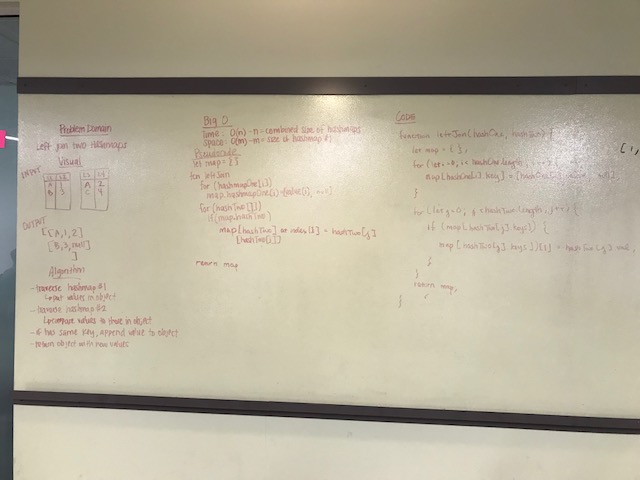 Problem Domain
Left join two Hashmaps
Visual
INPUT
A 1
B 3
A 2
C 4
OUTPUT
[[A,1,2]
[B,3,null]
]
Algorithm
- traverse hashmap #1
↳ put values in object
- traverse hashmap #2
↳ compare values to those in object
- if has same key, append value to object
- return object with new values
Big O
Time: O(n) - n = combined size of hashmaps
Space: O(m) - m = size of hashmap #1
Pseudocode
let map = {}
fcn leftJoin
for (hashmapOne[i])
map.hashmapOne[i] =
for (hashTwo[j])
if (map.hashTwo)
map[hashTwo] at index [1] = hashTwo[j]
[hashTwo[j]]
return map
Code
function leftJoin(hashOne, hashTwo) {
let map = {};
for (let i=0; i < hashOne.length; i++) {
map[hashOne[i].key] = [hashOne[i].value, null]
}
for (let j=0; j < hashTwo.length; j++) {
if (map[hashTwo[j].key]) {
map[hashTwo[j].key][1] = hashTwo[j].value;
}
}
return map;
}
[1,